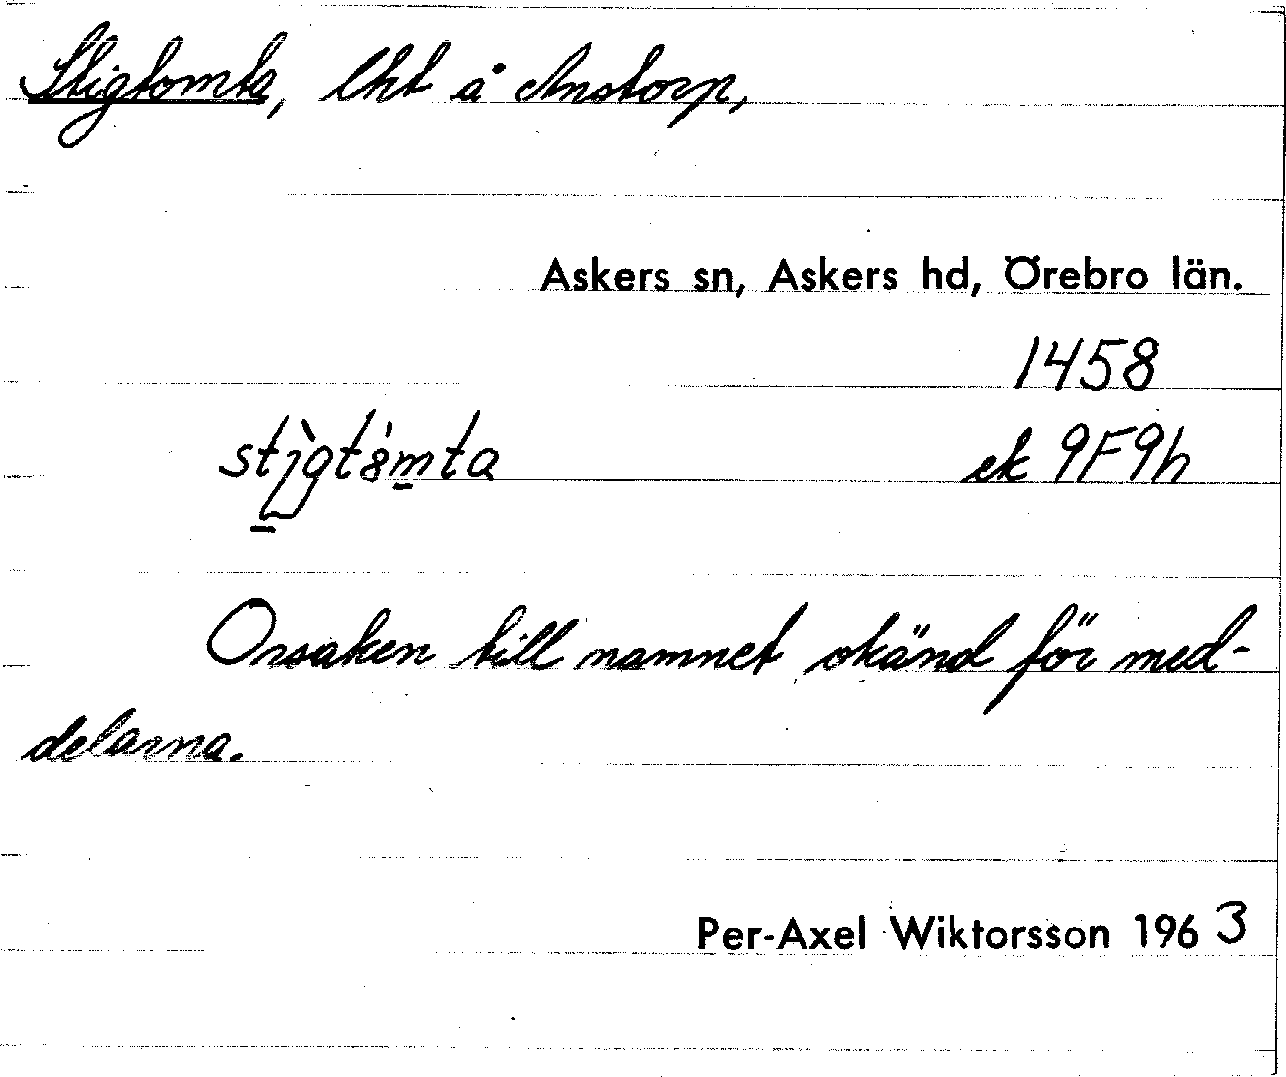 Stigtomta, lht å Anstorp,
Askers sn, Askers hd, Örebro län.
1458
ek 9F9h
Orsaken till namnet okänd för med-
delarna.
Per-Axel Wiktorsson 1963